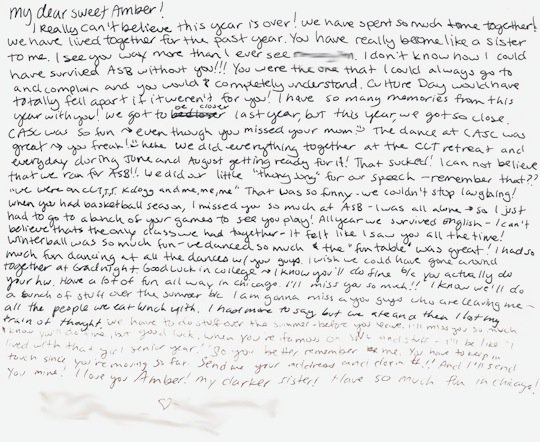 My dear sweet Amber!
I Really can't believe this year is over! We have spent so much together!
We have lived together for the past year. You have really become like a sister
to me. I see you way more than I ever see. I don't know how I could
have survived ASB without you!!! You were the one that I could always go to
and complain and you would completely understand. Culture Day would have
totally fell apart if it weren't for you! I have so many memories from this
year with you! We got to be closer last year, but this year, we got so close.
CASC was so fun → even though you missed your mom The dance at CASC was
great → you freak! hehe We did everything together at the CCT retreat and
everyday during June and August getting ready for it! That sucked! I can not believe
that we ran for ASB!! We did our little "thong song" for our speech - remember that??
"We were on me, me, me" That was so funny. We couldn't stop laughing!
When you had basketball season, I missed you so much at ASB - I was all alone → so I just
had to go to a bunch of your games to see you play! All year we survived English - I can't
believe thats the only class we had together - it felt like I saw you all the time!
Winterball was so much fun - we danced so much & the "fun table" was great! I had so
much fun dancing at all the dances w/ you guys. I wish we could have gone around
together at Grad night Good luck in college → I know you'll do fine b/c you actually do
your hw. Have a lot of fun all way in chicago. I'll miss you so much!! I know we'll do
a bunch of stuff over the summer b/c I am gonna miss you guys who are leaving me -
all the people we eat lunch with. I had more to say but we ate and then I lost my
train of thought We have to do stuff over the summer - before you leave. I'll miss you so much
I know you'll do fine, but good luck. When you're famous on and stuff - I'll be like "I
lived with that girl senior year! So you better remember me. You have to keep in
touch since you're moving so far. Send me your address and dorm #!! And I'll send
you mine! I love you Amber! My darker sister! Have so much fun in chicago!